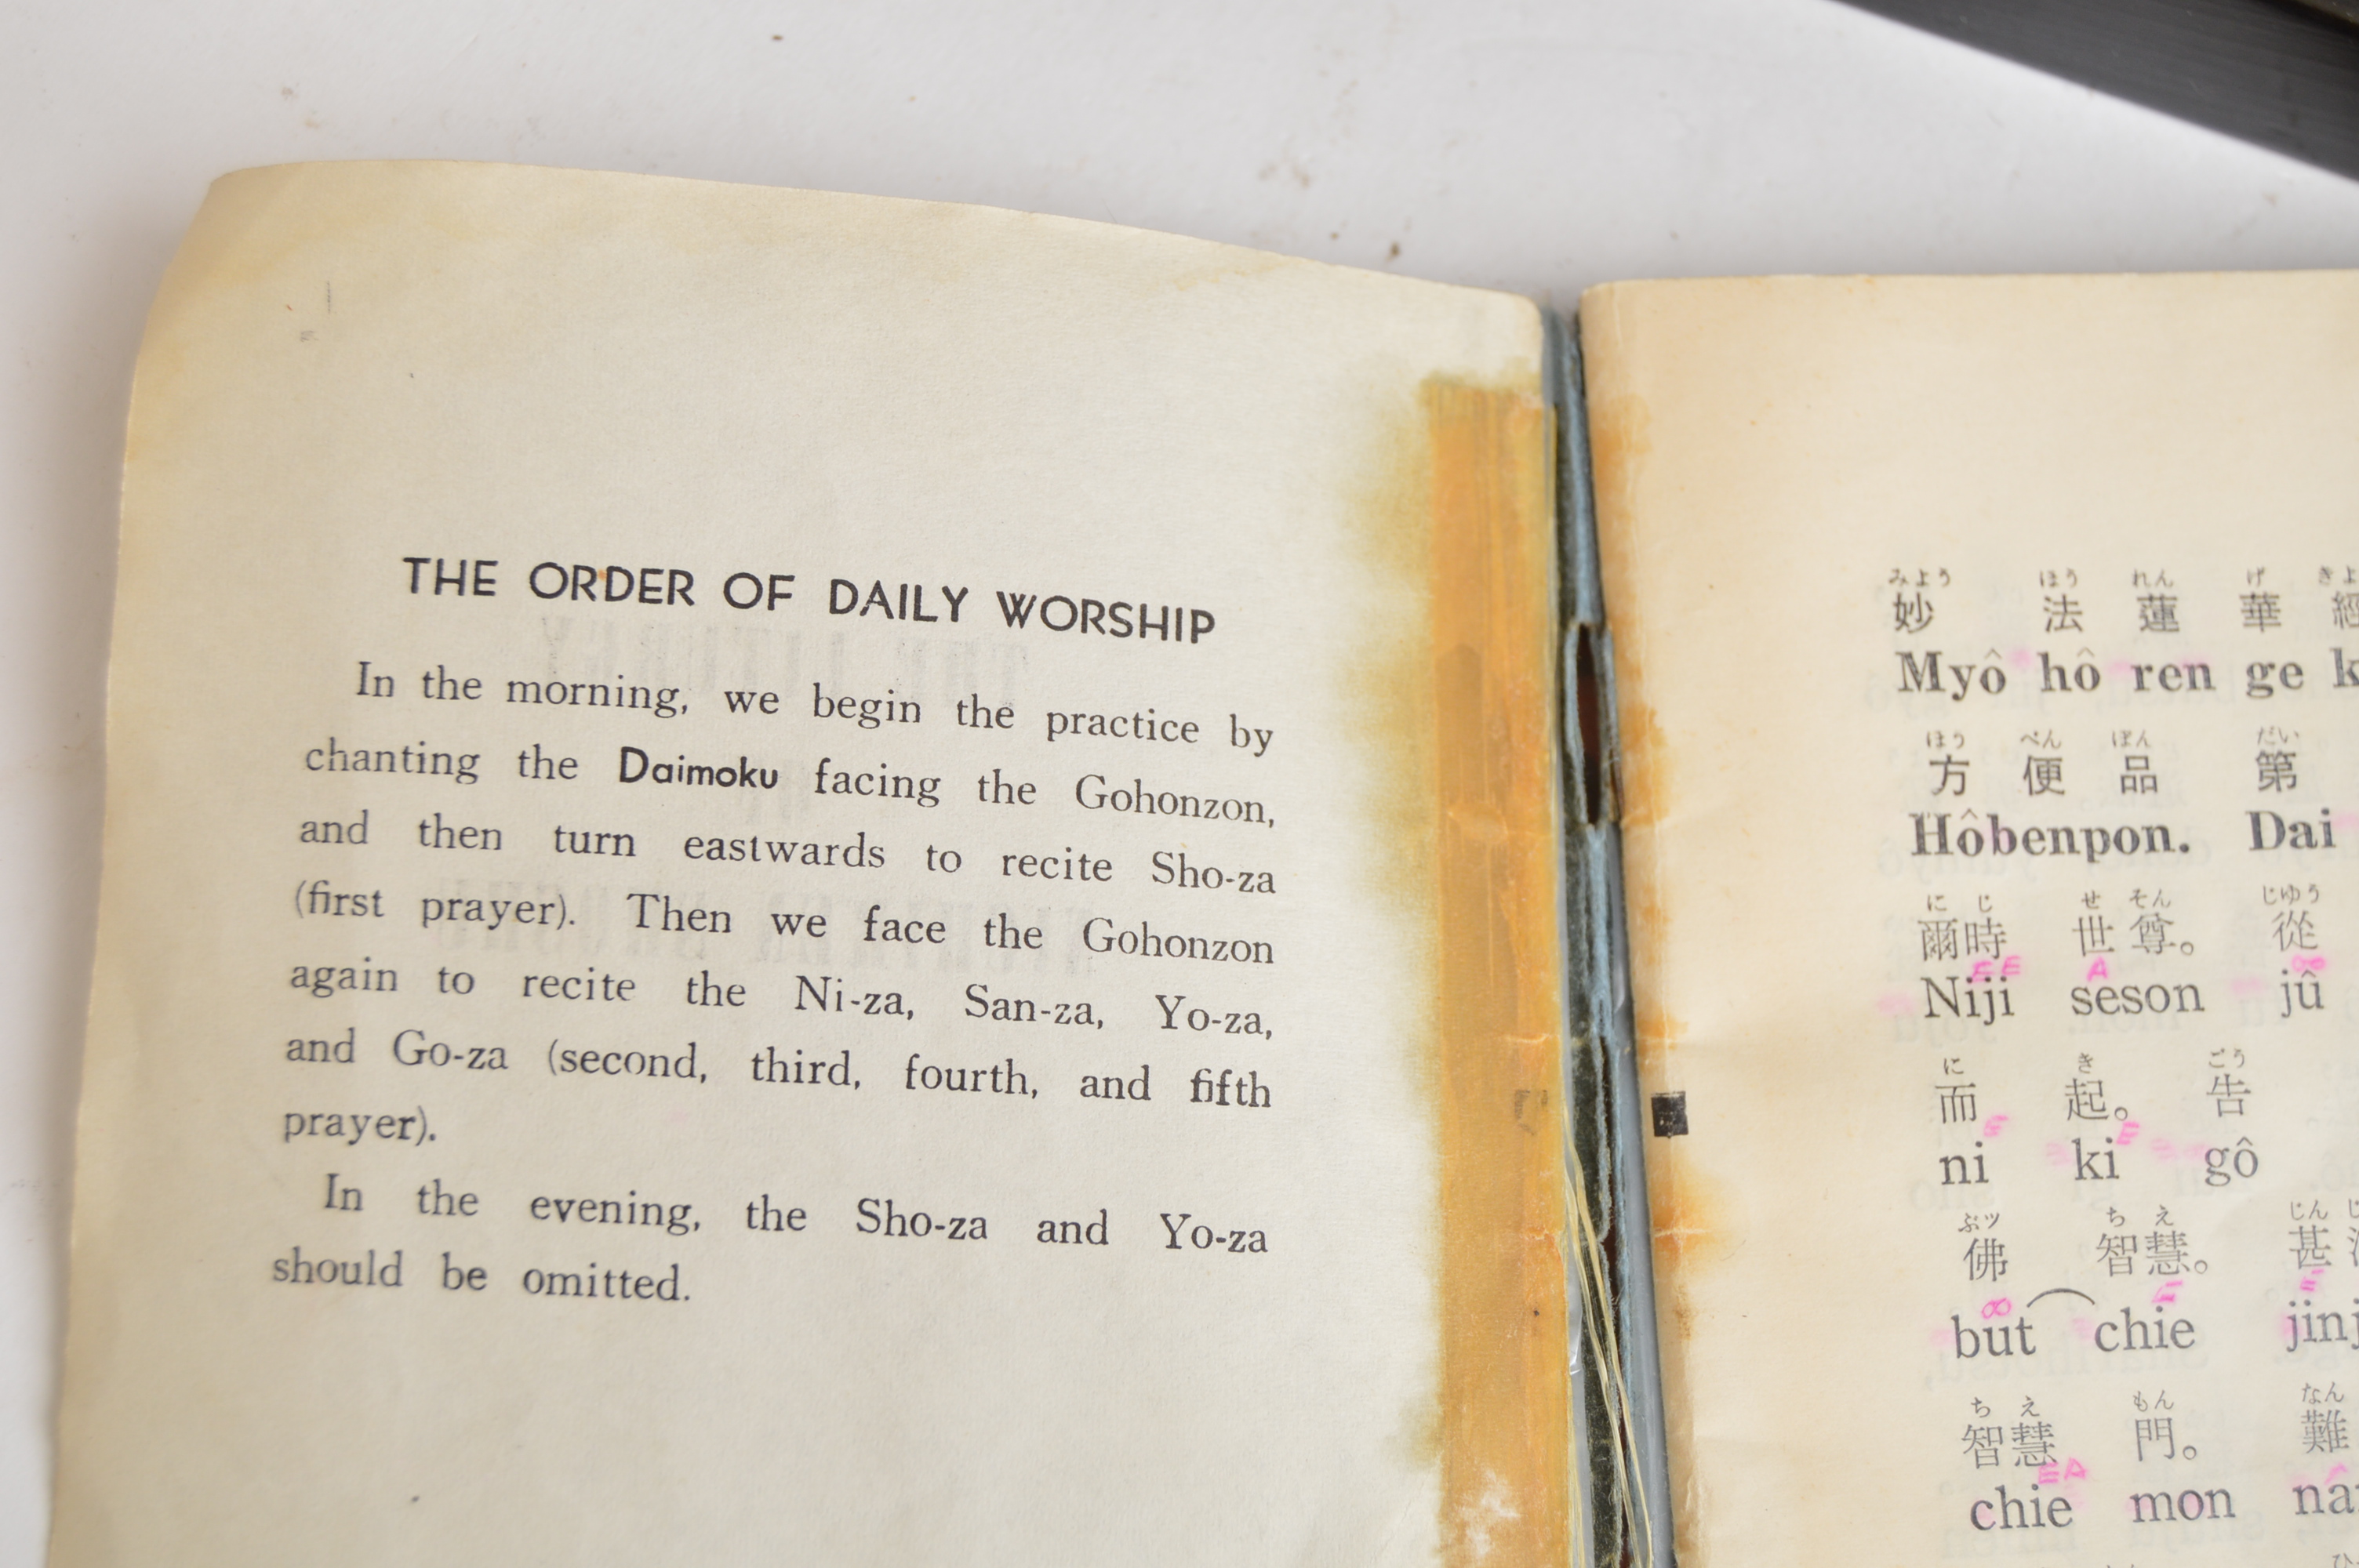 THE ORDER OF DAILY WORSHIP
In the morning, we begin the practice by
chanting the Daimoku facing the Gohonzon,
and then turn eastwards to recite Sho-za
(first prayer). Then we face the Gohonzon
again to recite the Ni-za, San-za, Yo-za,
and Go-za (second, third, fourth, and fifth
prayer).
In the evening, the Sho-za and Yo-za
should be omitted.
みよう ほう れん げ
妙 法 蓮 華 經
Myô hô ren ge
ほう べん ぽん だい
方 便 品 第
Hôbenpon. Dai
に じ せ そん じゆう
爾時 世尊。 從
EE A ∞
Niji seson jû
に き ごう
而 起。 告
E E
ni ki gô
ぶッ ち え じん
佛 智慧。 甚
∞ E E
but chie
ち え もん なん
智慧 門。 難
EA
chie mon